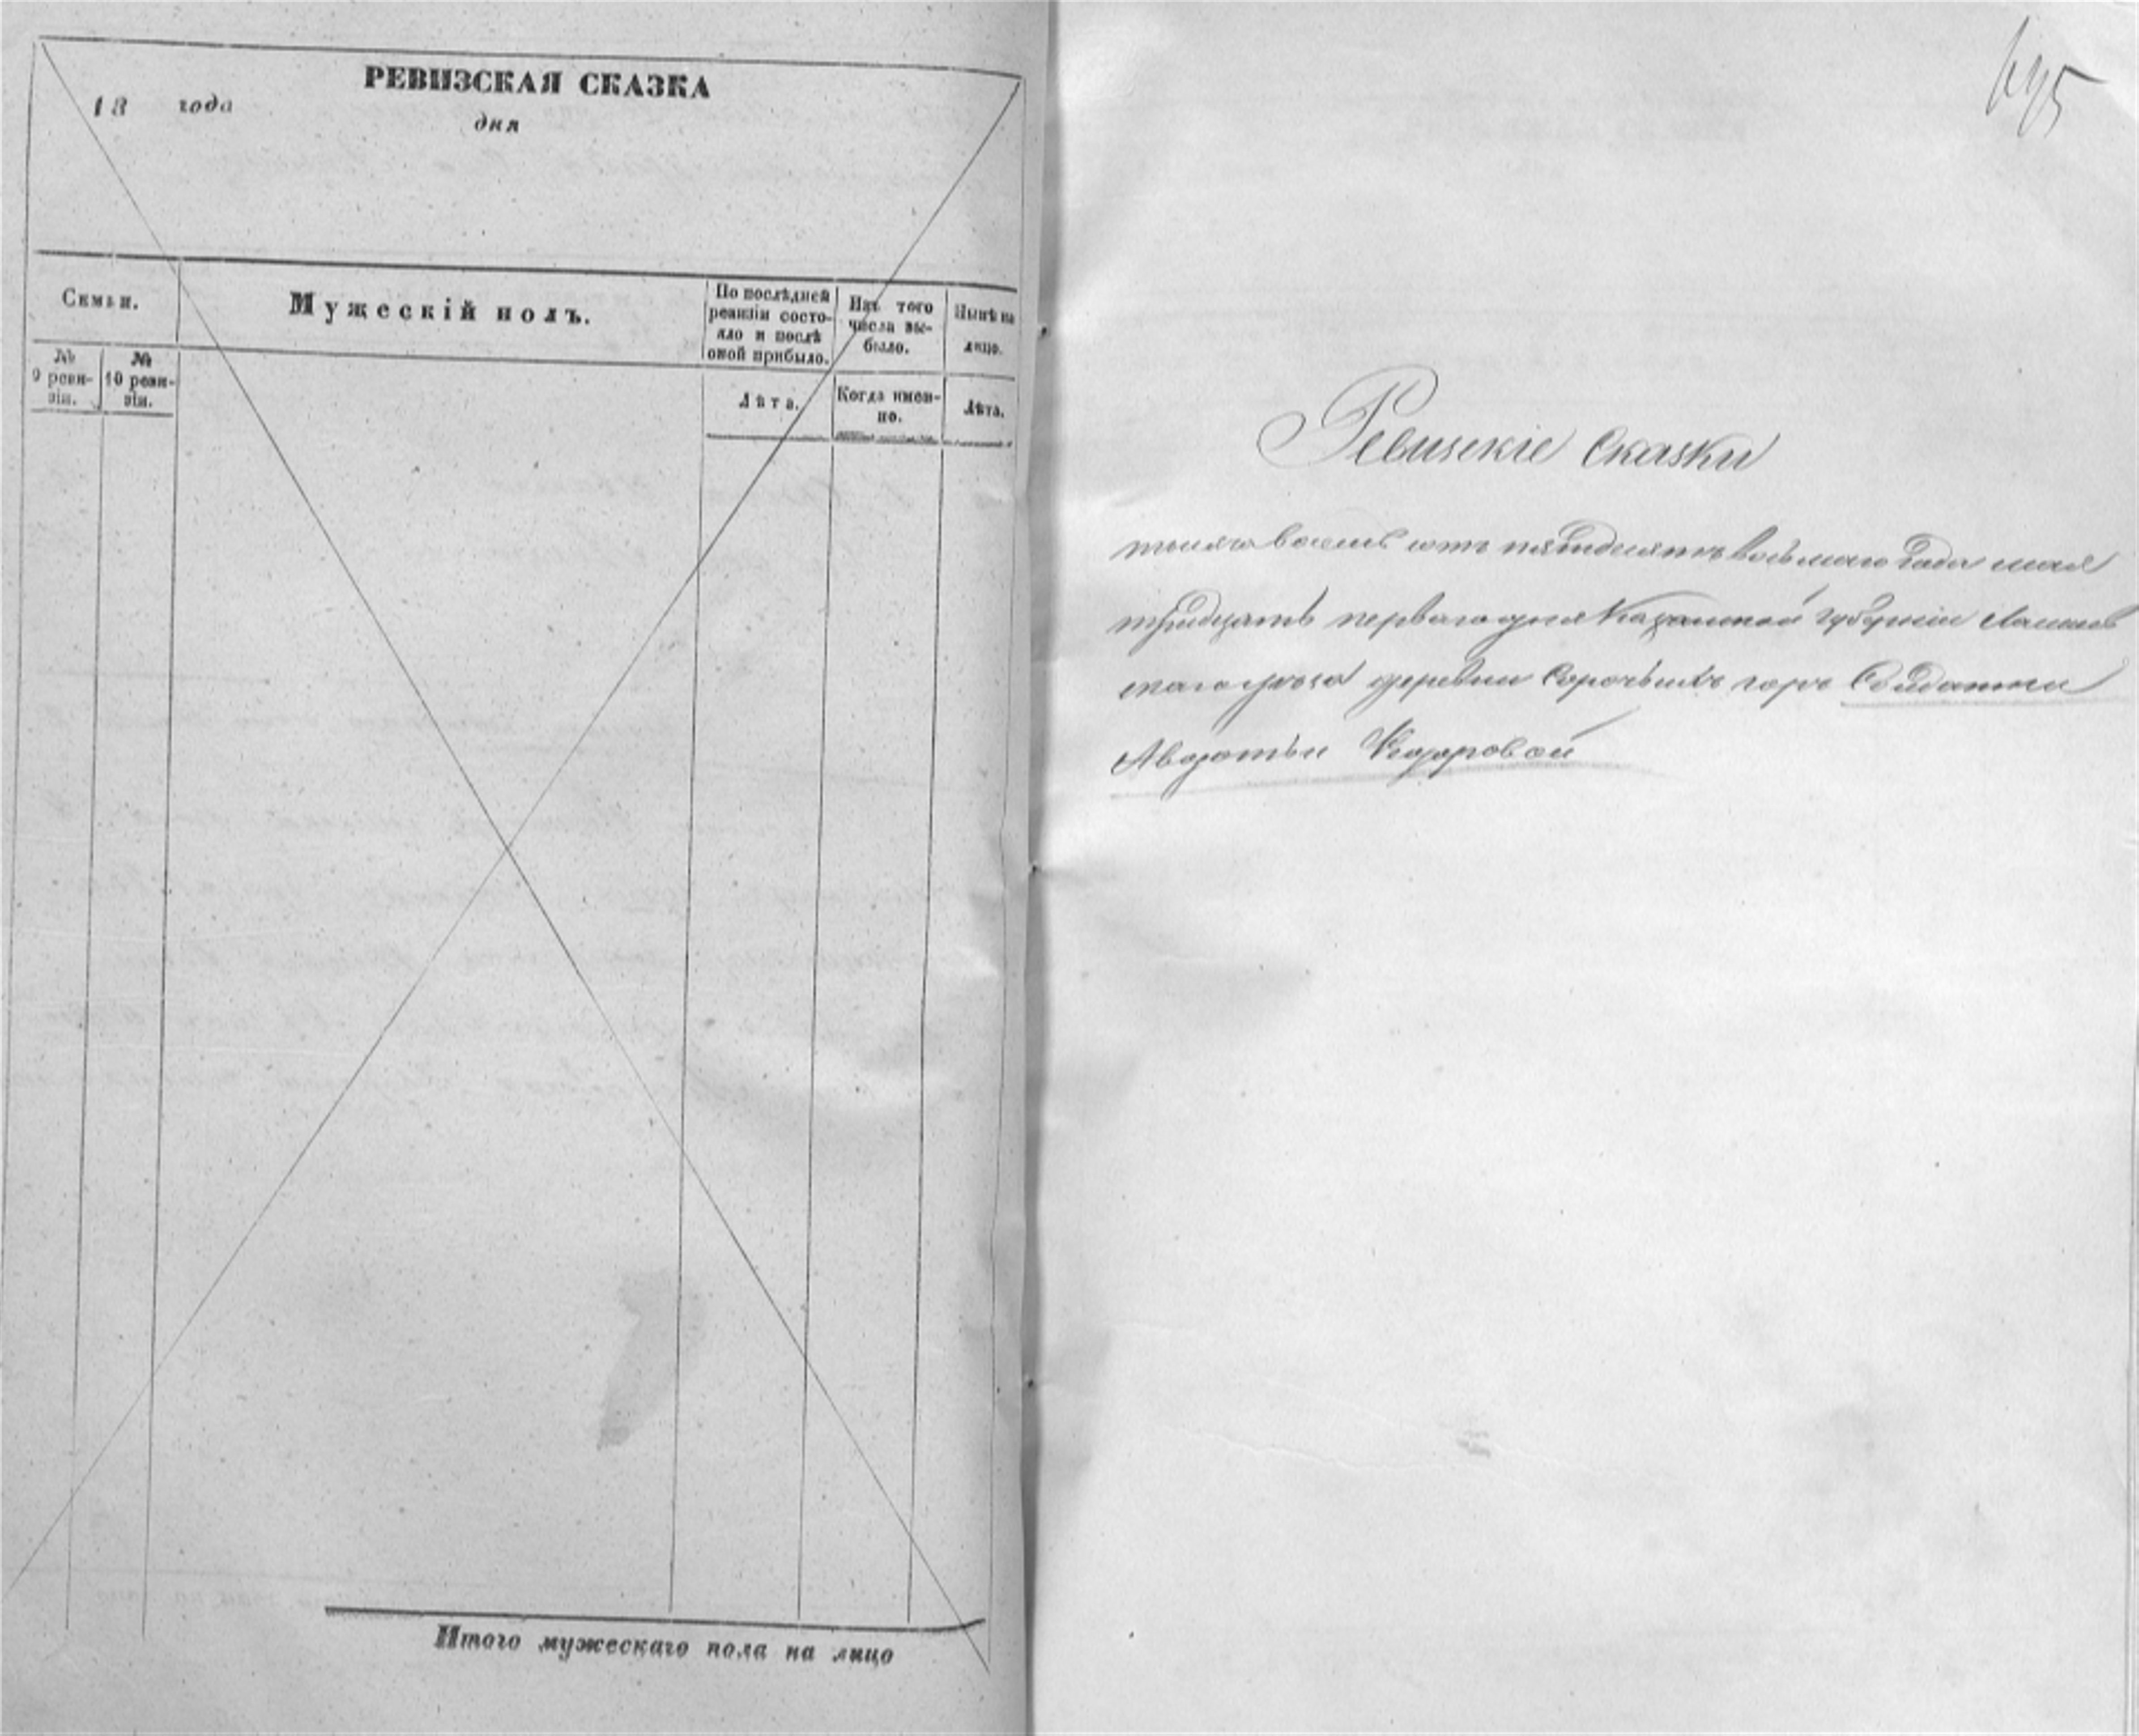 РЕВИЗСКАЯ СКАЗКА
18 года
дня
Семьи.
Мужескій полъ.
По послѣдней
ревизіи состо-
яло и послѣ
оной прибыло.
Изъ того
числа вы-
было.
Нынѣ на
лицо.
№
9 реви-
зіи.
№
10 реви-
зіи.
Лѣта.
Когда имен-
но.
Лѣта.
Итого мужескаго пола на лицо
Ревизскіе Сказки
тысяча восемь сотъ пятидесятъ восьмаго Года мая
тридцать перваго дня Казанской губерніи Лаишев
скаго уѣзда деревни Сорочьихъ горъ Солдатки
Авдотьи